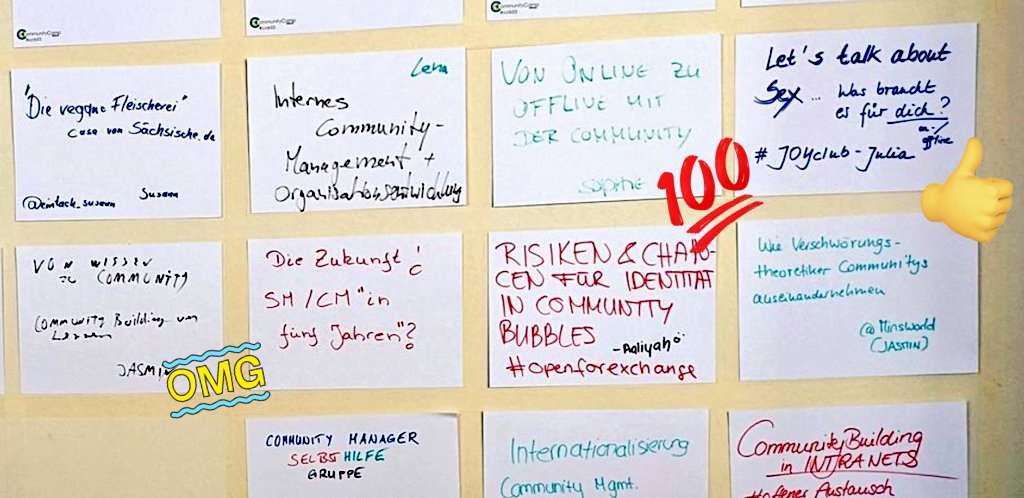 CommunityCamp
CommunityCamp
CommunityCamp
"Die vegane Fleischerei"
Case von Sächsische.de
Susann
@einfach_susann
Lena
Internes
Community-
Management +
Organisationsentwicklung
VON ONLINE ZU
OFFLINE MIT
DER COMMUNITY
Sophie
100
Let's talk about
Sex... Was braucht
es für dich?
on-/
offline
# JOYclub-Julia
VON WISSEN
ZU COMMUNITY
COMMUNITY Building um
Lernen
JASMIN
OMG
Die Zukunft!
SM/CM "in
fünf Jahren"?
RISIKEN & CHAN-
CEN FÜR IDENTITÄT
IN COMMUNITY
BUBBLES
- Aaliyah
#openforexchange
Wie Verschwörungs-
theoretiker Communitys
auseinandernehmen
@MinsWorld
(JASMIN)
COMMUNITY MANAGER
SELBSTHILFE
GRUPPE
Internationalisierung
Community Mgmt.
Community Building
in INTRANETS
#offener Austausch